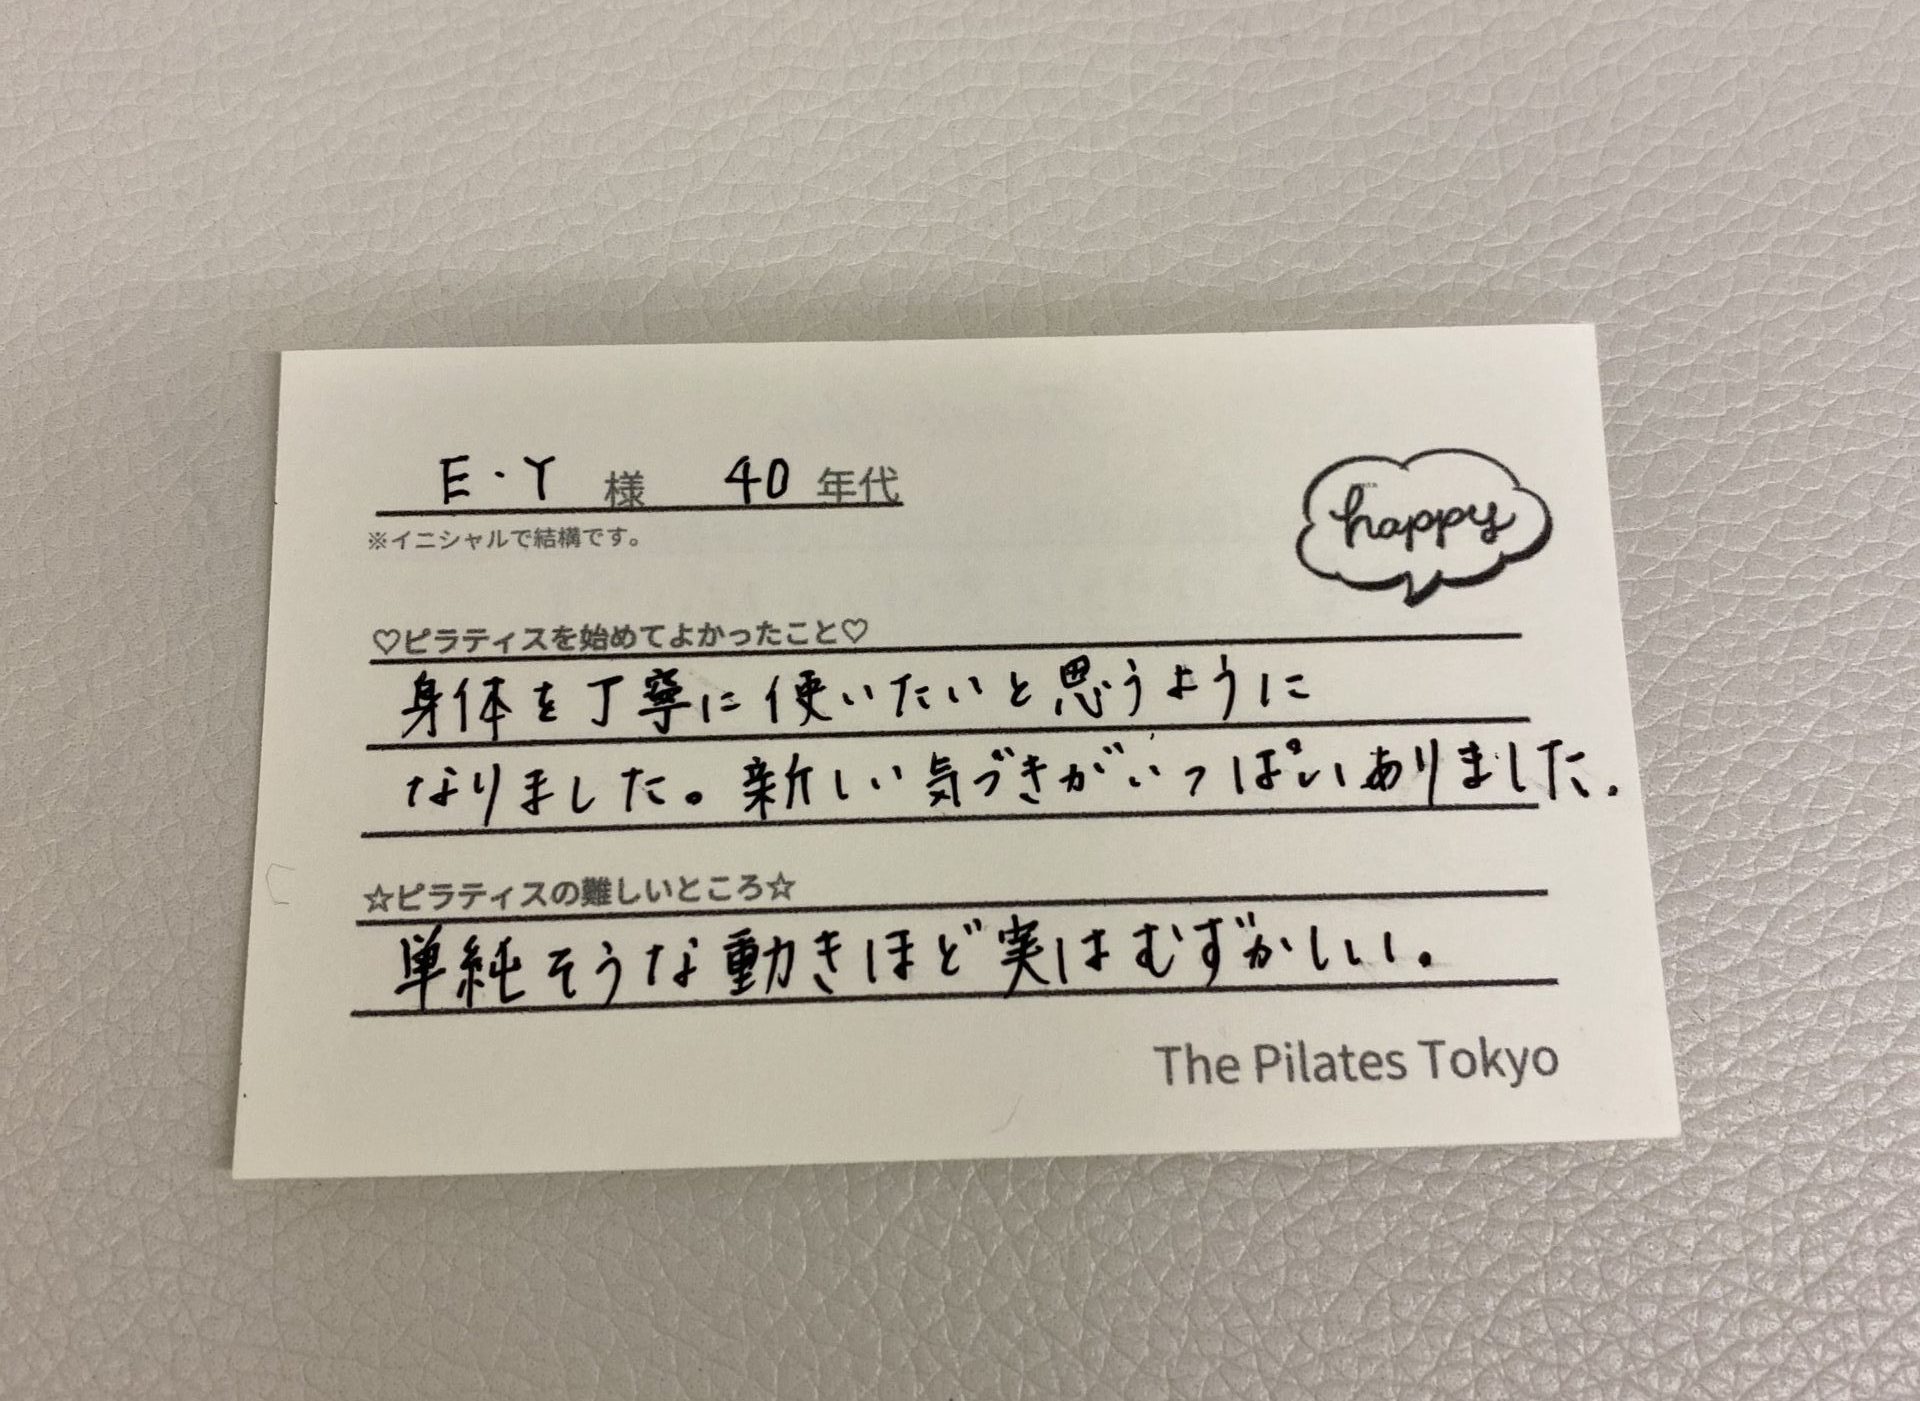 E・Y 様 40 年代
※イニシャルで結構です。
happy
♡ピラティスを始めてよかったこと♡
身体を丁寧に使いたいと思うように
なりました。新しい気づきがいっぱいありました.
☆ピラティスの難しいところ☆
単純そうな動きほど実はむずかしい。
The Pilates Tokyo